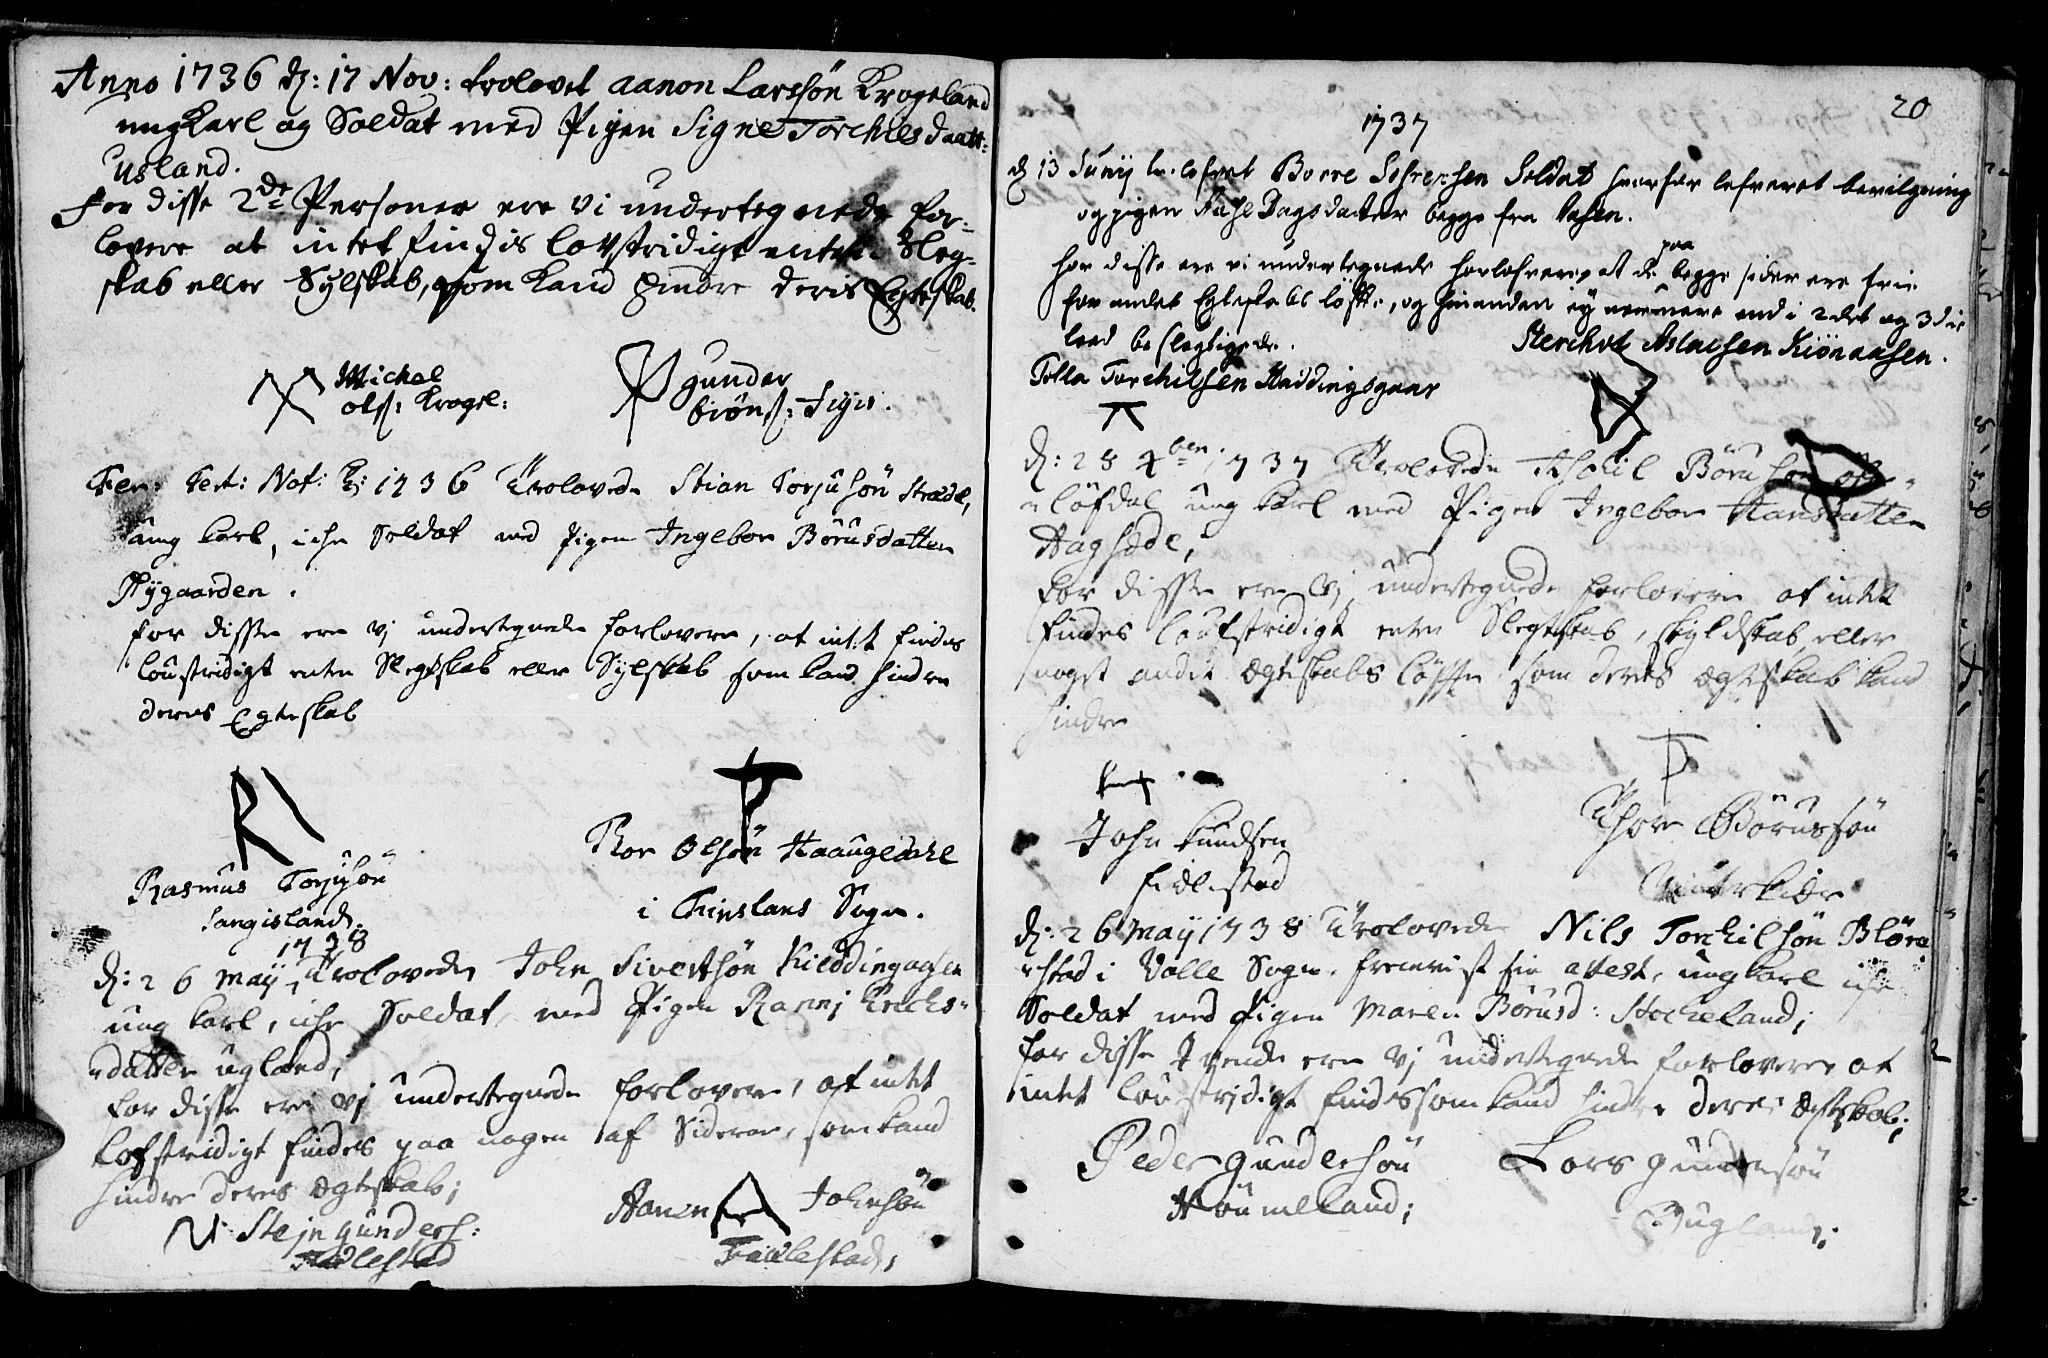 Anno 1736 d: 17 Nov: trolovet Aanon Larssøn Krogeland
ungkarl og Soldat med Pigen Signe Torchelsdaatt:
Usland.
For disse 2de Personer ere vi undertegnede for-
lovere at intet findis lovstridigt enten Sleg-
skab eller Sylskab, som kand hindre deris Egteskab.
Michel
Ols: Krogel:
gunder
biøns:
Fer: Tert: Nat: 1736 Trolovede Stian Torjusøn
ung karl, iche Soldat med Pigen Ingebor Børusdatter
Nygaarden.
for disse ere vj undertegnede forlovere, at intet findes
loustridigt enten Slegtskab eller Sylskab som kand hindre
deres Egteskab
R
Rasmus Torjusøn
Langisland
Tor Olsøn Haaugedahl
i Sogn.
1738
d: 26 Maij Trolovede John Sivertsøn
ung karl, iche Soldat, med Pigen Ranni Erichs-
datter Ugland;
for disse ere vj undertegnede forlovere, at intet
lofstridigt findes paa nogen af Siderne, som kand
hindre deres Ægteskab;
Stejn Gunders:
Fidlestad
Aanen Johnsøn
Fidlestad,
20
1737
d 13 Junij trolofvet Borre Sørensen Soldat hvorfor lefveret bevilgning
og pigen Dagsdatter begge fra Aasen.
for disse ere vi undertegnede forlofvere, at de paa begge sider ere frie
for andet Egteskabs løfte, og hinanden ej nermere end i 2det og 3die
leed beslegtigede.
Aslachsen Kiønaasen.
Tolla Torchilsen Haddingsgaar
d: 28 1737 Trolovede Børusøn
Løfdal ung karl med Pigen Ingebor Hansdatter
for disse ere Vj undertegnede forlovere at intet
findes loufstridigt enten Slegtskab, skyldskab, eller
noget andet Ægteskabs løffte som deres Ægteskab kand
hindre
John Kundsen
Fidlestad
Thore Børussøn
d: 26 Maij 1738 Trolovede Nils Torchilsøn
stad i Valle Sogn, fremvist sin attest, ung karl iche
Soldat med Pigen Maren Børusd: Stocheland;
for disse Tvende ere Vj undertegnede forlovere at
intet loustridigt findes som kand hindre deres Ægteskab;
Peder Gundersøn
Houmeland;
Lars Gundersøn
Bugland;